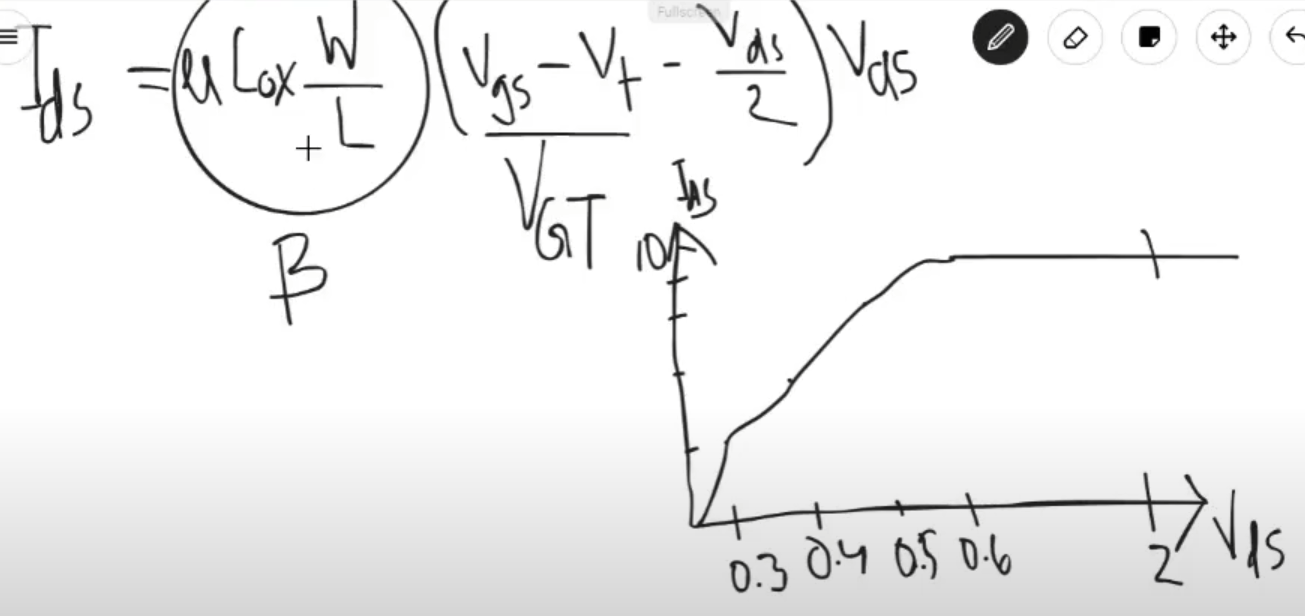 Fullscreen
Ids = μ Cox W/L (Vgs - Vt - Vds/2) Vds
β
VGT
Ids
10
0.3 0.4 0.5 0.6 2 Vds